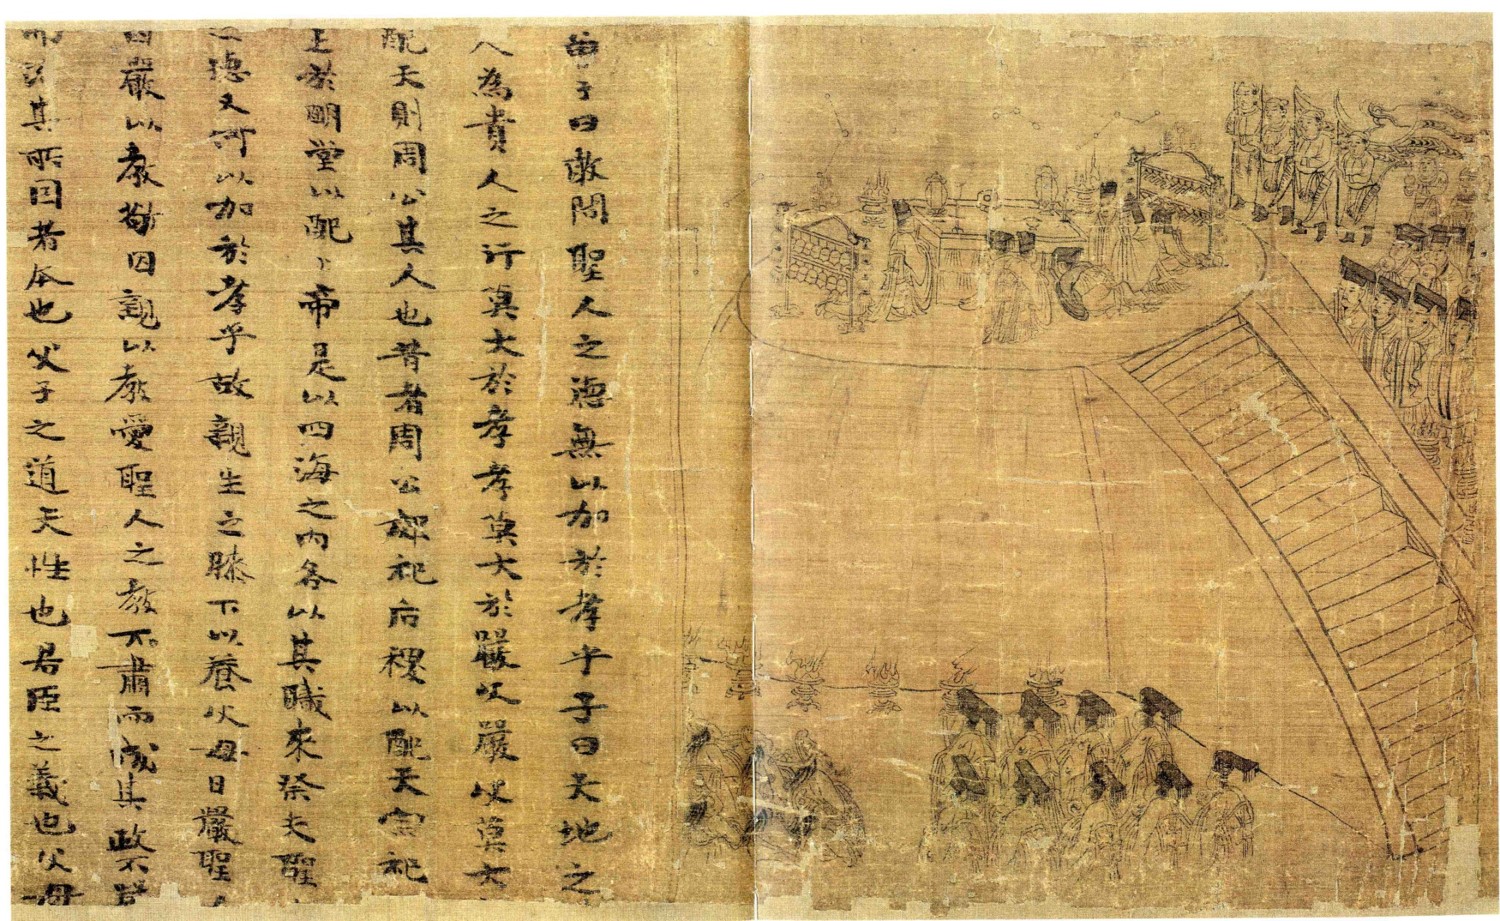 曾子曰敢問聖人之德無以加於孝乎子曰天地之
人為貴人之行莫大於孝孝莫大於嚴父嚴父莫大
配天則周公其人也昔者周公郊祀后稷以配天宗祀
王於明堂以配上帝是以四海之內各以其職來祭夫聖
之德又何以加於孝乎故親生之膝下以養父母日嚴聖
因嚴以教敬因親以教愛聖人之教不肅而成其政不嚴
而治其所因者本也父子之道天性也君臣之義也父母